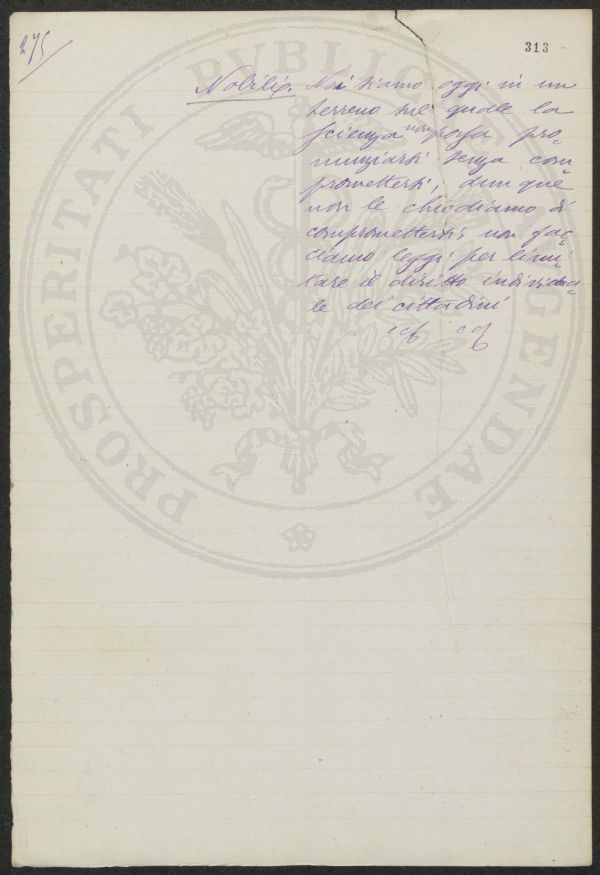 275
313
Nobili, Noi siamo oggi in un
terreno sul quale la
scienza non possa pro=
nunziarsi senza com=
promettersi, dunque
non le chiediamo di
compromettersi, non fac=
ciamo leggi per limi=
tare il diritto individua=
le dei cittadini
PROSPERITATI PVBLICAE AVGENDAE